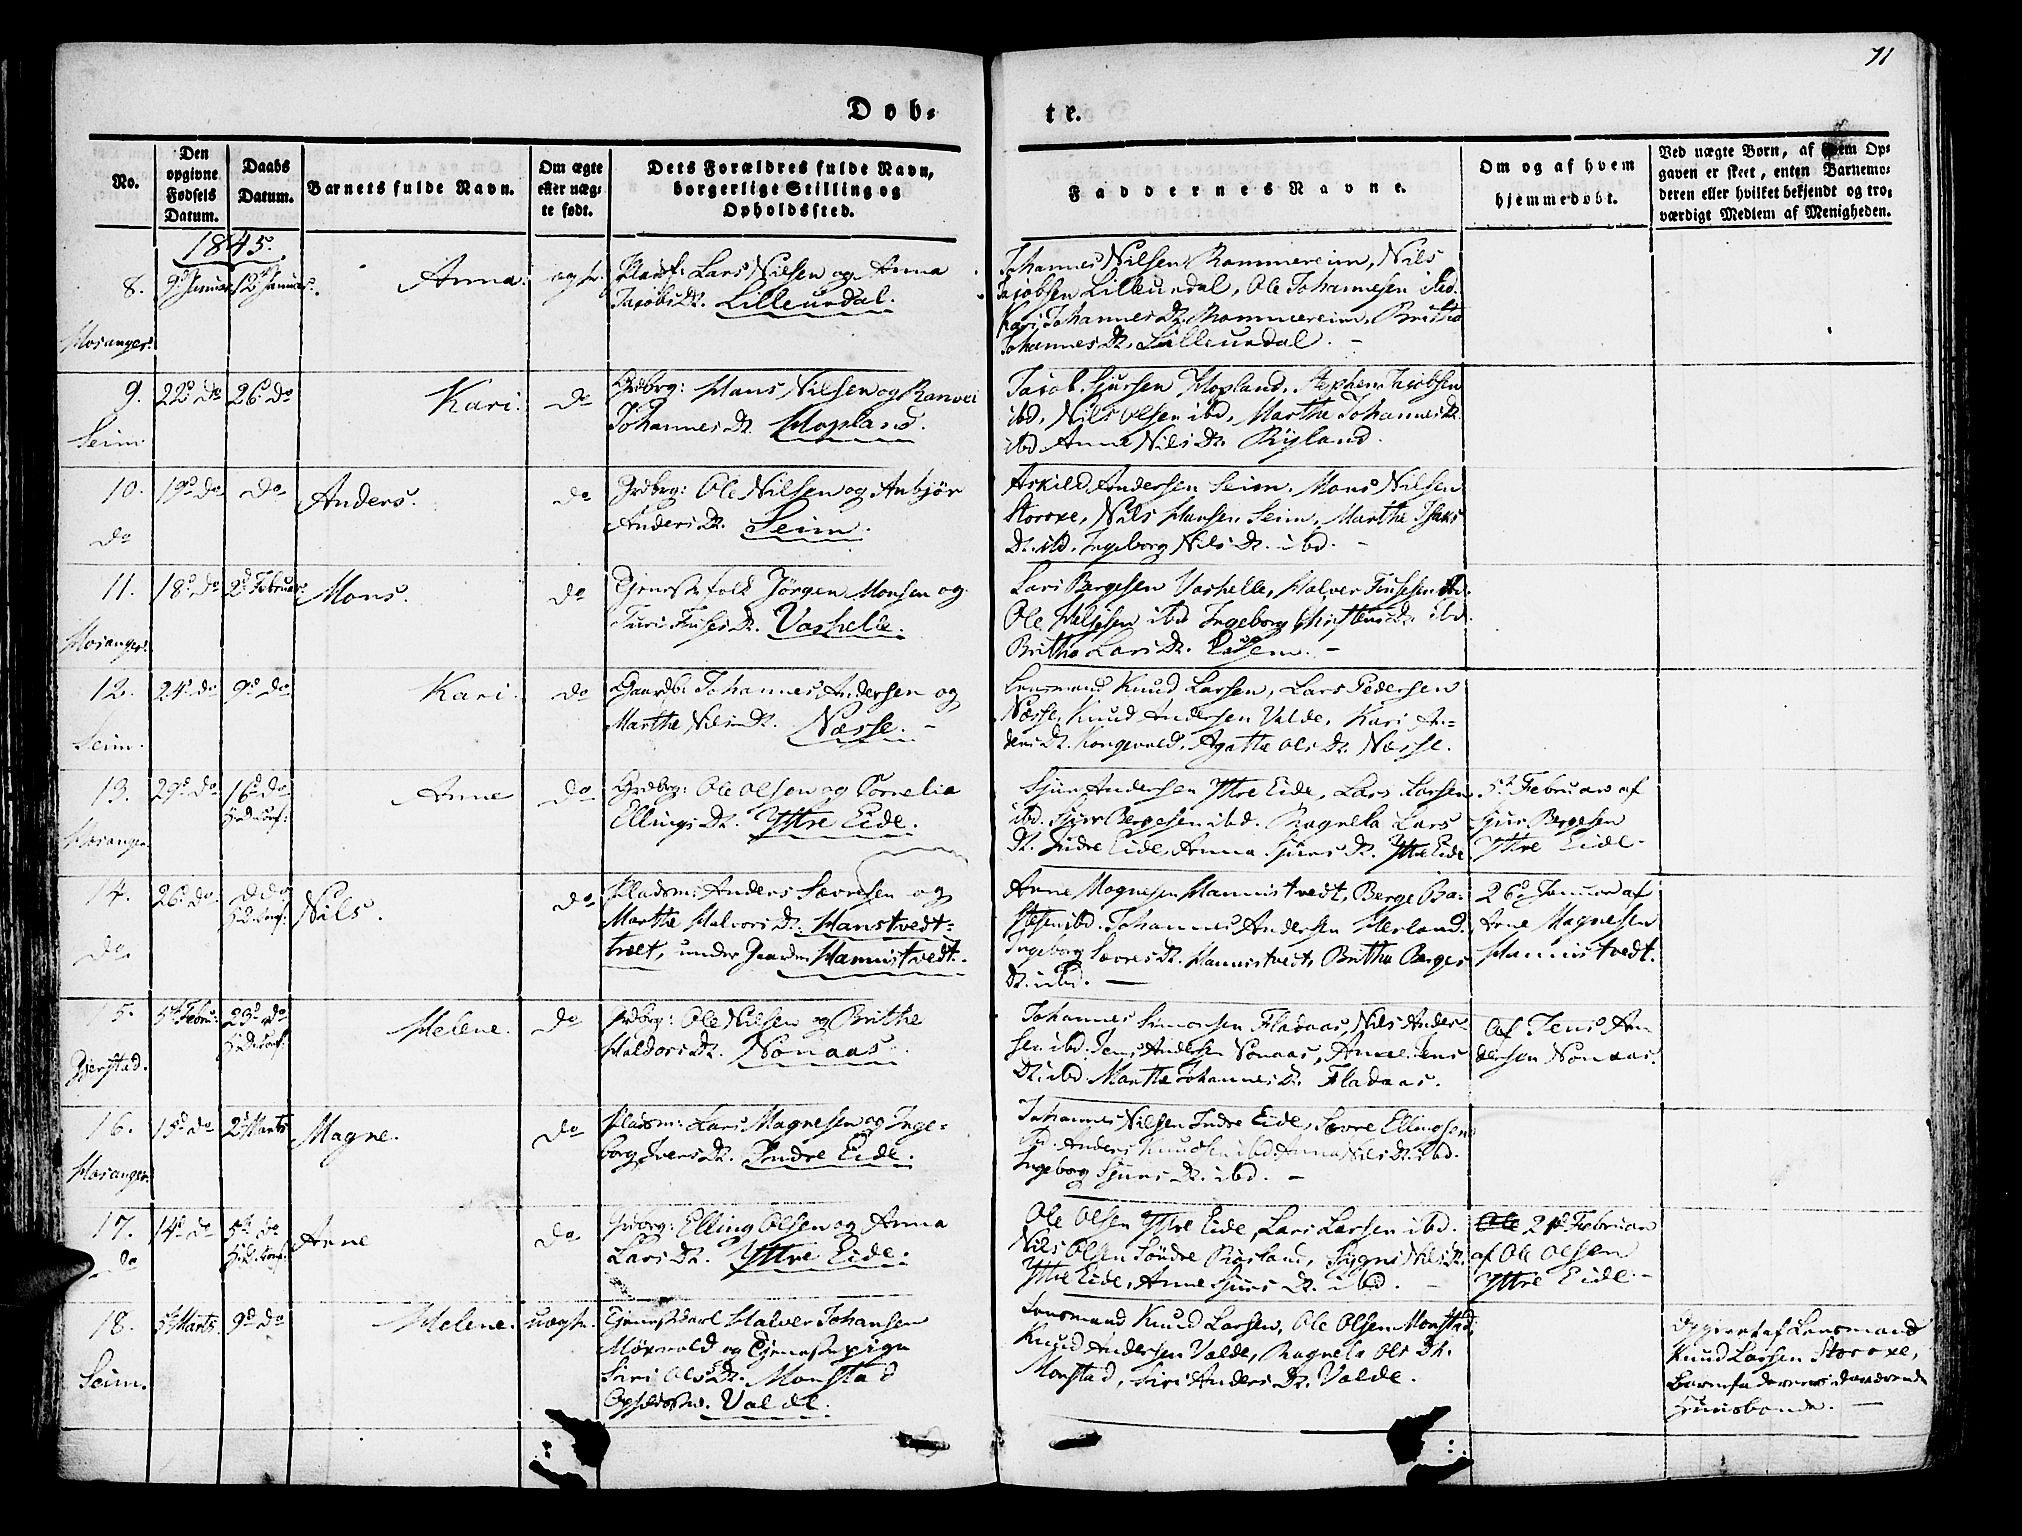 71
Døbte.
No.
Den opgivne Fødsels Datum.
Daabs Datum.
Barnets fulde Navn.
Om ægte eller uægte født.
Dets Forældres fulde Navn, borgerlige Stilling og Opholdssted.
Faddernes Navne.
Om og af hvem hjemmedøbt.
Ved uægte Børn, af hvem Opgaven er skeet, enten Barnemoderen eller hvilket bekjendt og troværdigt Medlem af Menigheden.
1845.
8. 9d Januar 12d Januar. Anna.
Mosanger.
Lars Nilsen og Anna
Jacobs Dr. Lilleurdal.
Johannes Nilsen Rommereim, Nils
Jacobsen Lilleurdal, Ole Johannesen ibd.
Kari Johannes Dr. Rommereim, Britha
Johannes Dr. Lilleurdal. -
9. 22d do 26d do Kari. do
Seim
Grdbrg: Hans Nilsen og Ranvei
Johannes Dr. Hopland.
Jacob Sjursen Hopland, Stephen Jacobsen
ibd, Nils Olsen ibd, Marthe Johannes Dr.
ibd Anne Nils Dr. Ryland.
10. 19d do do Anders. do
do
Grdbrg: Ole Nilsen og Anbjør
Anders Dr. Seim.
Askild Andersen Seim, Mons Nilsen
Storoxe, Nils Hansen Seim, Marthe Isaks
Dr. ibd. Ingeborg Nils Dr. ibd. -
11. 18d do 2d Februar. Mons. do
Mosanger.
Tjenestefolk Jörgen Monsen og
Turi Dr. Vashelle.
Lars Bergesen Vashelle, Halver ibd.
Ole ibd Ingeborg Dr. ibd.
Britha Lars Dr. -
12. 24d do 9d do Kari. do
Seim.
Gaardb: Johannes Andersen og
Marthe Nils Dr. Næsse. -
Lensmand Knud Larsen, Lars Pedersen
Næsse, Knud Andersen Valde, Kari An-
ders Dr. Kongevold, Agatha Ols Dr. Næsse.
13. 29d do 16d do Anne do
Mosanger
Grdbrg: Ole Olsen og Cornelia
Ellings Dr. Yttre Eide.
Sjur Andersen Yttre Eide, Lars Larsen
ibd. Sjur Bergesen ibd. Ragnela Lars
Dr. Indre Eide, Anna Sjurs Dr. Yttre Eide
5th Februar af
Sjur Bergesen
Yttre Eide.
14. 26d do do Nils. do
do
Pladsm: Anders Sævresen og
Marthe Halvors Dr. Hanstvedt-
træet, under Gaarden Hannistvedt.
Arne Magnesen Hannistvedt, Berge Ba-
stesen ibd. Johannes Andersen Herland.
Ingeborg Sævres Dr. Hannistvedt, Britha Berges
Dr. ibd. -
26d Januar af
Arne Magnesen
Hannistvedt.
15. 5th Febru: 23d do Helene. do
Gjerstad.
Grdbrg: Ole Nilsen og Brithe
Haldors Dr. Nonaas.
Johannes Simonsen Fladaas, Nils Ander-
sen ibd. Jens Andersen Nonaas, Jens
Dr. ibd Marthe Johannes Dr. Fladaas.
Af Jens An-
dersen Nonaas.
16. 15d do 2d Marts Magne. do
Mosanger.
Pladsm: Lars Magnesen og Inge-
borg Ivers Dr. Indre Eide.
Johannes Nilsen Indre Eide, Sævre Ellingsen
ibd. Anders Knudsen ibd Anna Nils Dr. ibd.
Ingeborg Sjurs Dr. ibd. -
17. 14d do 5th do Anne do
do
Grdbrg: Elling Olsen og Anna
Lars Dr. Yttre Eide.
Ole Olsen Yttre Eide, Lars Larsen ibd.
Nils Olsen Söndre Röisland, Sygni Nils Dr.
Yttre Eide, Anne Sjurs Dr. ibd. -
21d Februar
af Ole Olsen
Yttre Eide. -
18. 5th Marts 9d do Helene. uægte.
Seim.
Tjenestekarl Halver Johansen
Mörvold og Tjenestepige
Siri Ols Dr. Monstad
Opholdssted. Valde.
Lensmand Knud Larsen, Ole Olsen Monstad,
Knud Andersen Valde, Ragnela Ols Dr.
Monstad, Siri Anders Dr. Valde.
Opgivet af Lensmand
Knud Larsen Storoxe,
Huusbonde. -